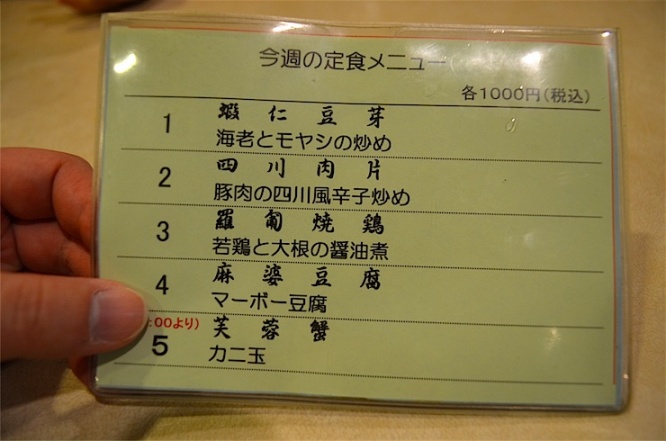 今週の定食メニュー
各1000円(税込)
1 蝦仁豆芽
海老とモヤシの炒め
2 四川肉片
豚肉の四川風辛子炒め
3 羅葡焼鶏
若鶏と大根の醤油煮
4 麻婆豆腐
マーボー豆腐
:00より)
5 芙蓉蟹
カニ玉